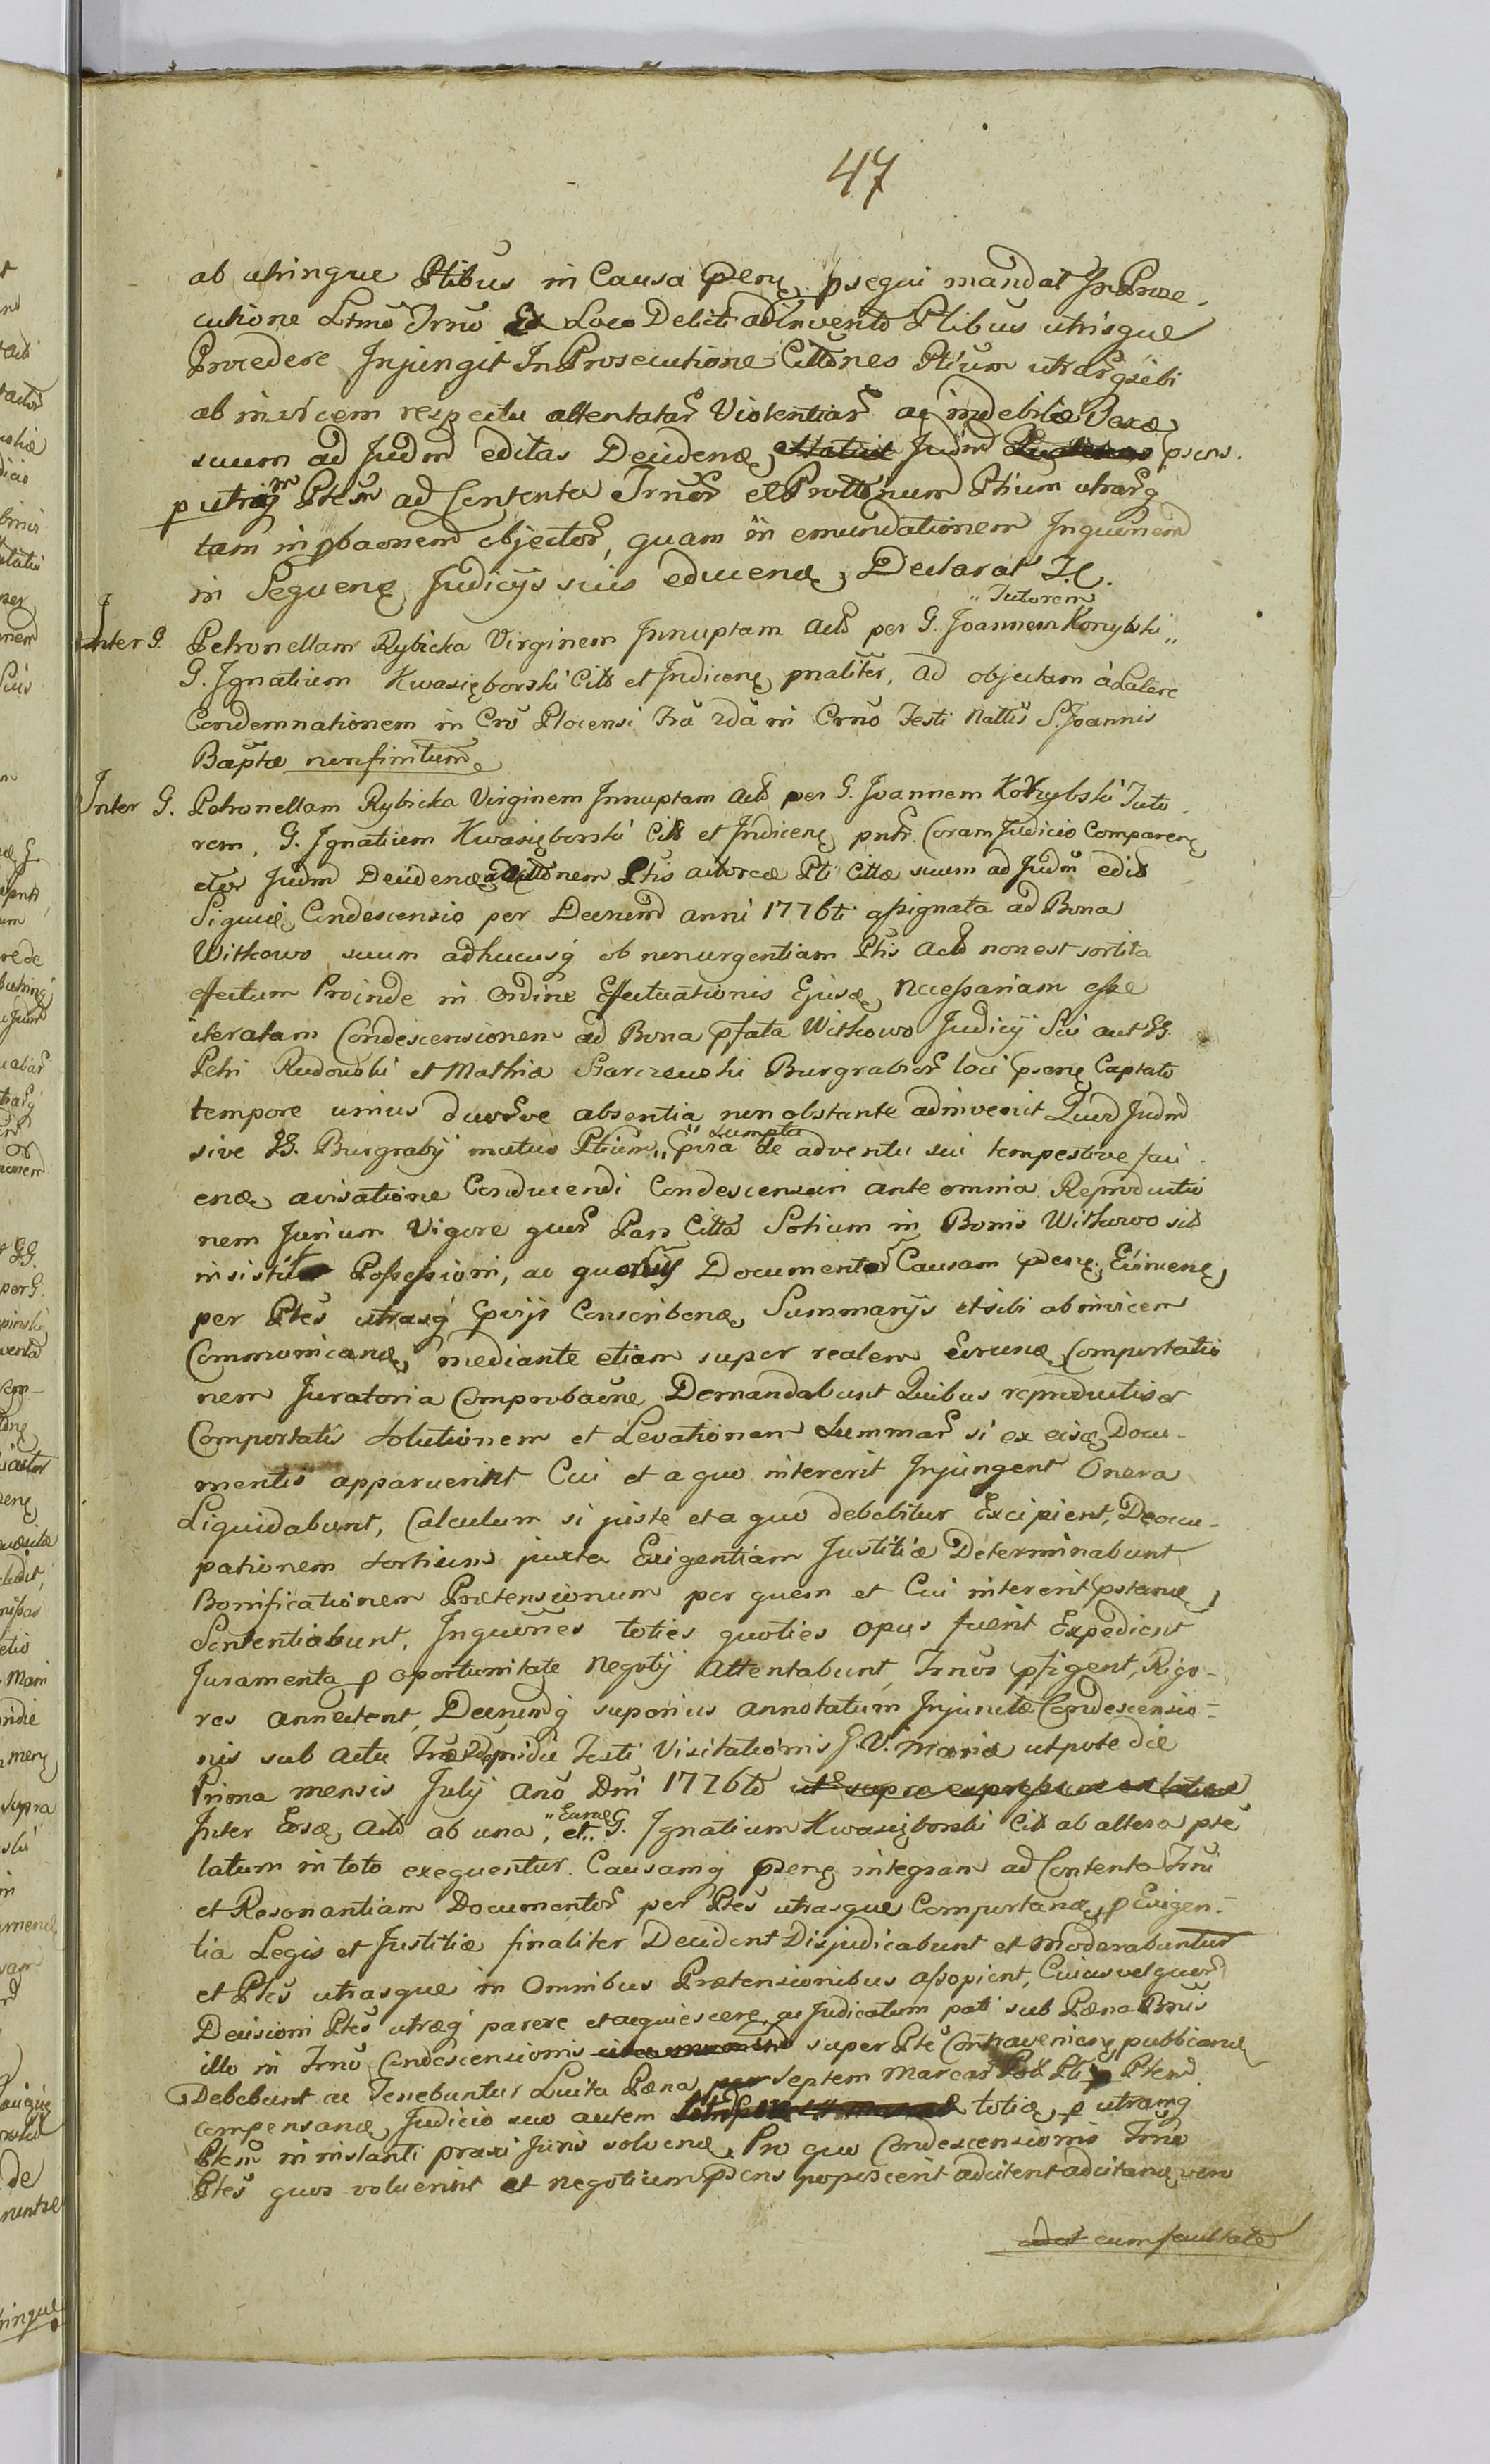 47
ab utrinque Ptibus in Causa psenę psequi mandat In Prose-
cutione Ltmo Trno Ex Loco Delicti adinvento Ptibus utrisque
Procedere Injungit In Prosecutione Cittônes Ptium utrarq sibi
ab invicem respectu attentatar Violentiar ac indebitæ Vexæ
suum ad Judm editas Decidenæ Judm psens.
p utrāq Ptem ad Contenta Trnor et Prottônum Ptium utrarq
tam in pbaonem objector, quam in emundationem Inquônem
in Sequenę Judicijs suis educenæ, Declarat I. C.
„Tutorem
Inter G. Petronellam Rybicka Virginem Innuptam Act per G. Joannem Konybski„
G. Ignatium Kwasięborski Citt et Indicenę pnaliter, ad objectam à Latere
Condemnationem in Cro Plocensi Fra 2da in Crno Festi Nattis S. Joannis
Baptæ nonfinitum
Inter G. Petronellam Rybicka Virginem Innuptam Act per G. Joannem Kotrybski Tuto
rem, G. Ignatium Kwasięborski Citt et Indicenę pntr. Coram Judicio Comparenę
ctor Judm Decidenæ Cittônem Ptis actoreæ Pti Cittæ suum ad Judm edit
Siquidę Condescensio per Decrenm anni 1776ti assignata ad Bona
Witkowo suum adhucusq ob nonurgentiam Ptis Act non est sortita
effectum Proinde in Ordine Effectuationis Ejusæ, Necessariam esse
iteratam Condescensionem ad Bona pfata Witkowo Judicij Sui aut GG.
Petri Rudowski et Mathiæ Starczewski Burgrabior loci psenę Captato
tempore unius duorve absentia non obstante adinvenit Quod Judm
sumpta
sive GG. Burgrabij motus Ptium„ pvia de adventu sui tempestive faci
enæ avisatione Conducendi Condescensuri ante omnia Reproductio
nem Jurium Vigore quor Pars Citta Sortium in Bonis Witkowo sit
insistit Possessioni, ac quorvis Documentor Causam psenę Evincenę,
per Ptes utrasq Copijs Conscribenæ, Summarijs et sibi ab invicem
Communicanæ, mediante etiam super realem eorunæ Comportatio
nem Juratoria Comprobaône Demandabunt Quibus reproductis et
Comportatis Solutionem et Levationem Summar si ex eisæ Docu-
mentis apparuerint Cui et a quo intererit Injungent Onera
Liquidabunt, Calculum si juste et a quo debebitur Excipient, Deocu-
pationem Sortium juxta Exigentiam Justitiæ Determinabunt
Bonificationem Prætensionum per quem et Cui intererit pstanæ,
Sententiabunt, Inquônes toties quoties opus fuerit Expedient
Juramenta p oportunitate Negotij Attentabunt, Trnos pfigent, Rigo-
res annectent, Decrenmq superius annotatum Injunctæ Condescensio-
nis sub actu Fræ 2dæ pridie Festi Visitationis B. V. Mariæ utpote die
Prima mensis Julij Ano Dni 1776to
„Eanæ
Inter Eosæ, Act ab una, et„ G. Ignatium Kwasięborski Citt ab altera pte
latum in toto exequentur. Causamq psenę integram ad Contenta Trni
et Resonantiam Documentor per Ptes utrasque Comportanæ, p Exigen-
tia Legis et Justitiæ finaliter Decident Disjudicabunt et Moderabuntur
et Ptes utrasque in Omnibus Prætensionibus assopient, Cuiusvel quor
Decisioni Ptes utræq parere et acquiescere, ac Judicatum pati sub Pæna Bnis
illo in Trno Condescensionis super Pte Contravenienę publicanæ
Debebunt ac Tenebuntur Luita Pæna septem Marcar Pti p Ptem
compensanæ, Judicio suo autem totiæ, p utramq
Ptem in instanti praxi Juris solvenæ. Pro quo Condescensionis Trno
Ptes quos voluerint et negotium psens poposcerit adcitent adcitanę vero
cum facultate